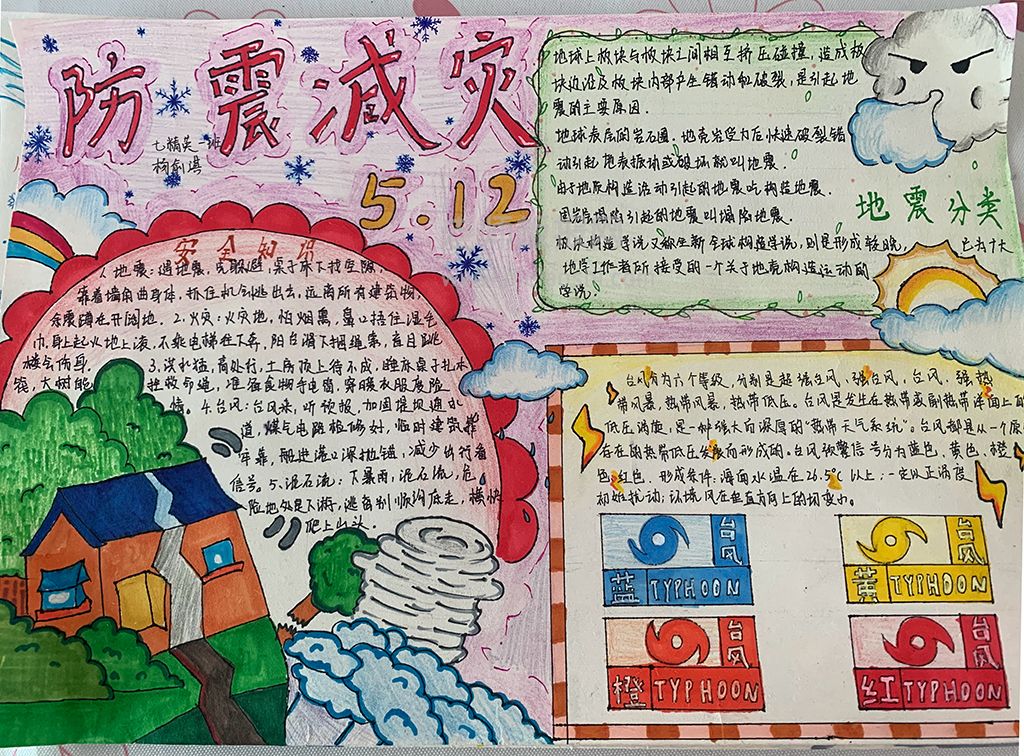 防震减灾
七精英一班
5.12
地球上板块与板块之间相互挤压碰撞，造成板
块边沿及板块内部产生错动和破裂，是引起地
震的主要原因．
地球表层的岩石圈．地壳岩受力后快速破裂错
动引起地表振动或破坏就叫地震．
由于地质构造活动引起的地震叫构造地震．
因岩层塌陷引起的地震叫塌陷地震．
板块构造学说又称全新全球构造学说，则是形成较晚，已为广大
地学工作者所接受的一个关于地壳构造运动的
学说．
地震分类
安全知识
1.地震：遇地震，先躲避，桌子床下找空隙，
靠着墙角曲身体，抓住机会逃出去，远离所有建筑物，
余震蹲在开阔地．2.火灾：火灾地，怕烟熏，鼻口捂住湿毛
巾，身上起火地上滚，不乘电梯往下奔，阳台滑下捆绳索，盲目跳
楼会伤身．3.洪水猛，高处行，土房顶上待不成，睡床桌子扎木
筏，大树能拴救命绳，准备食物手电筒，穿暖衣服度险
情．4.台风：台风来，听预报，加固堤坝通水
道，煤气电路检修好，临时建筑整
牢靠，船进港口深抛锚，减少出行看
信号．5.泥石流：下暴雨，泥石流，危
险地处是下游，逃离别顺沟底走，横快
爬上山头．
台风分为六个等级，分别是超强台风，强台风，台风，强热
带风暴，热带风暴，热带低压。台风是发生在热带或副热带洋面上的
低压涡旋，是一种强大而深厚的“热带天气系统”。台风都是从一个原
存在的热带低压发展而形成的．台风预警信号分为蓝色，黄色，橙
色，红色．形成条件：海面水温在26.5℃以上；一定以正涡度
初始扰动；环境风在垂直方向上的切变小．
台风
蓝 TYPHOON
台风
黄 TYPHOON
台风
橙 TYPHOON
台风
红 TYPHOON